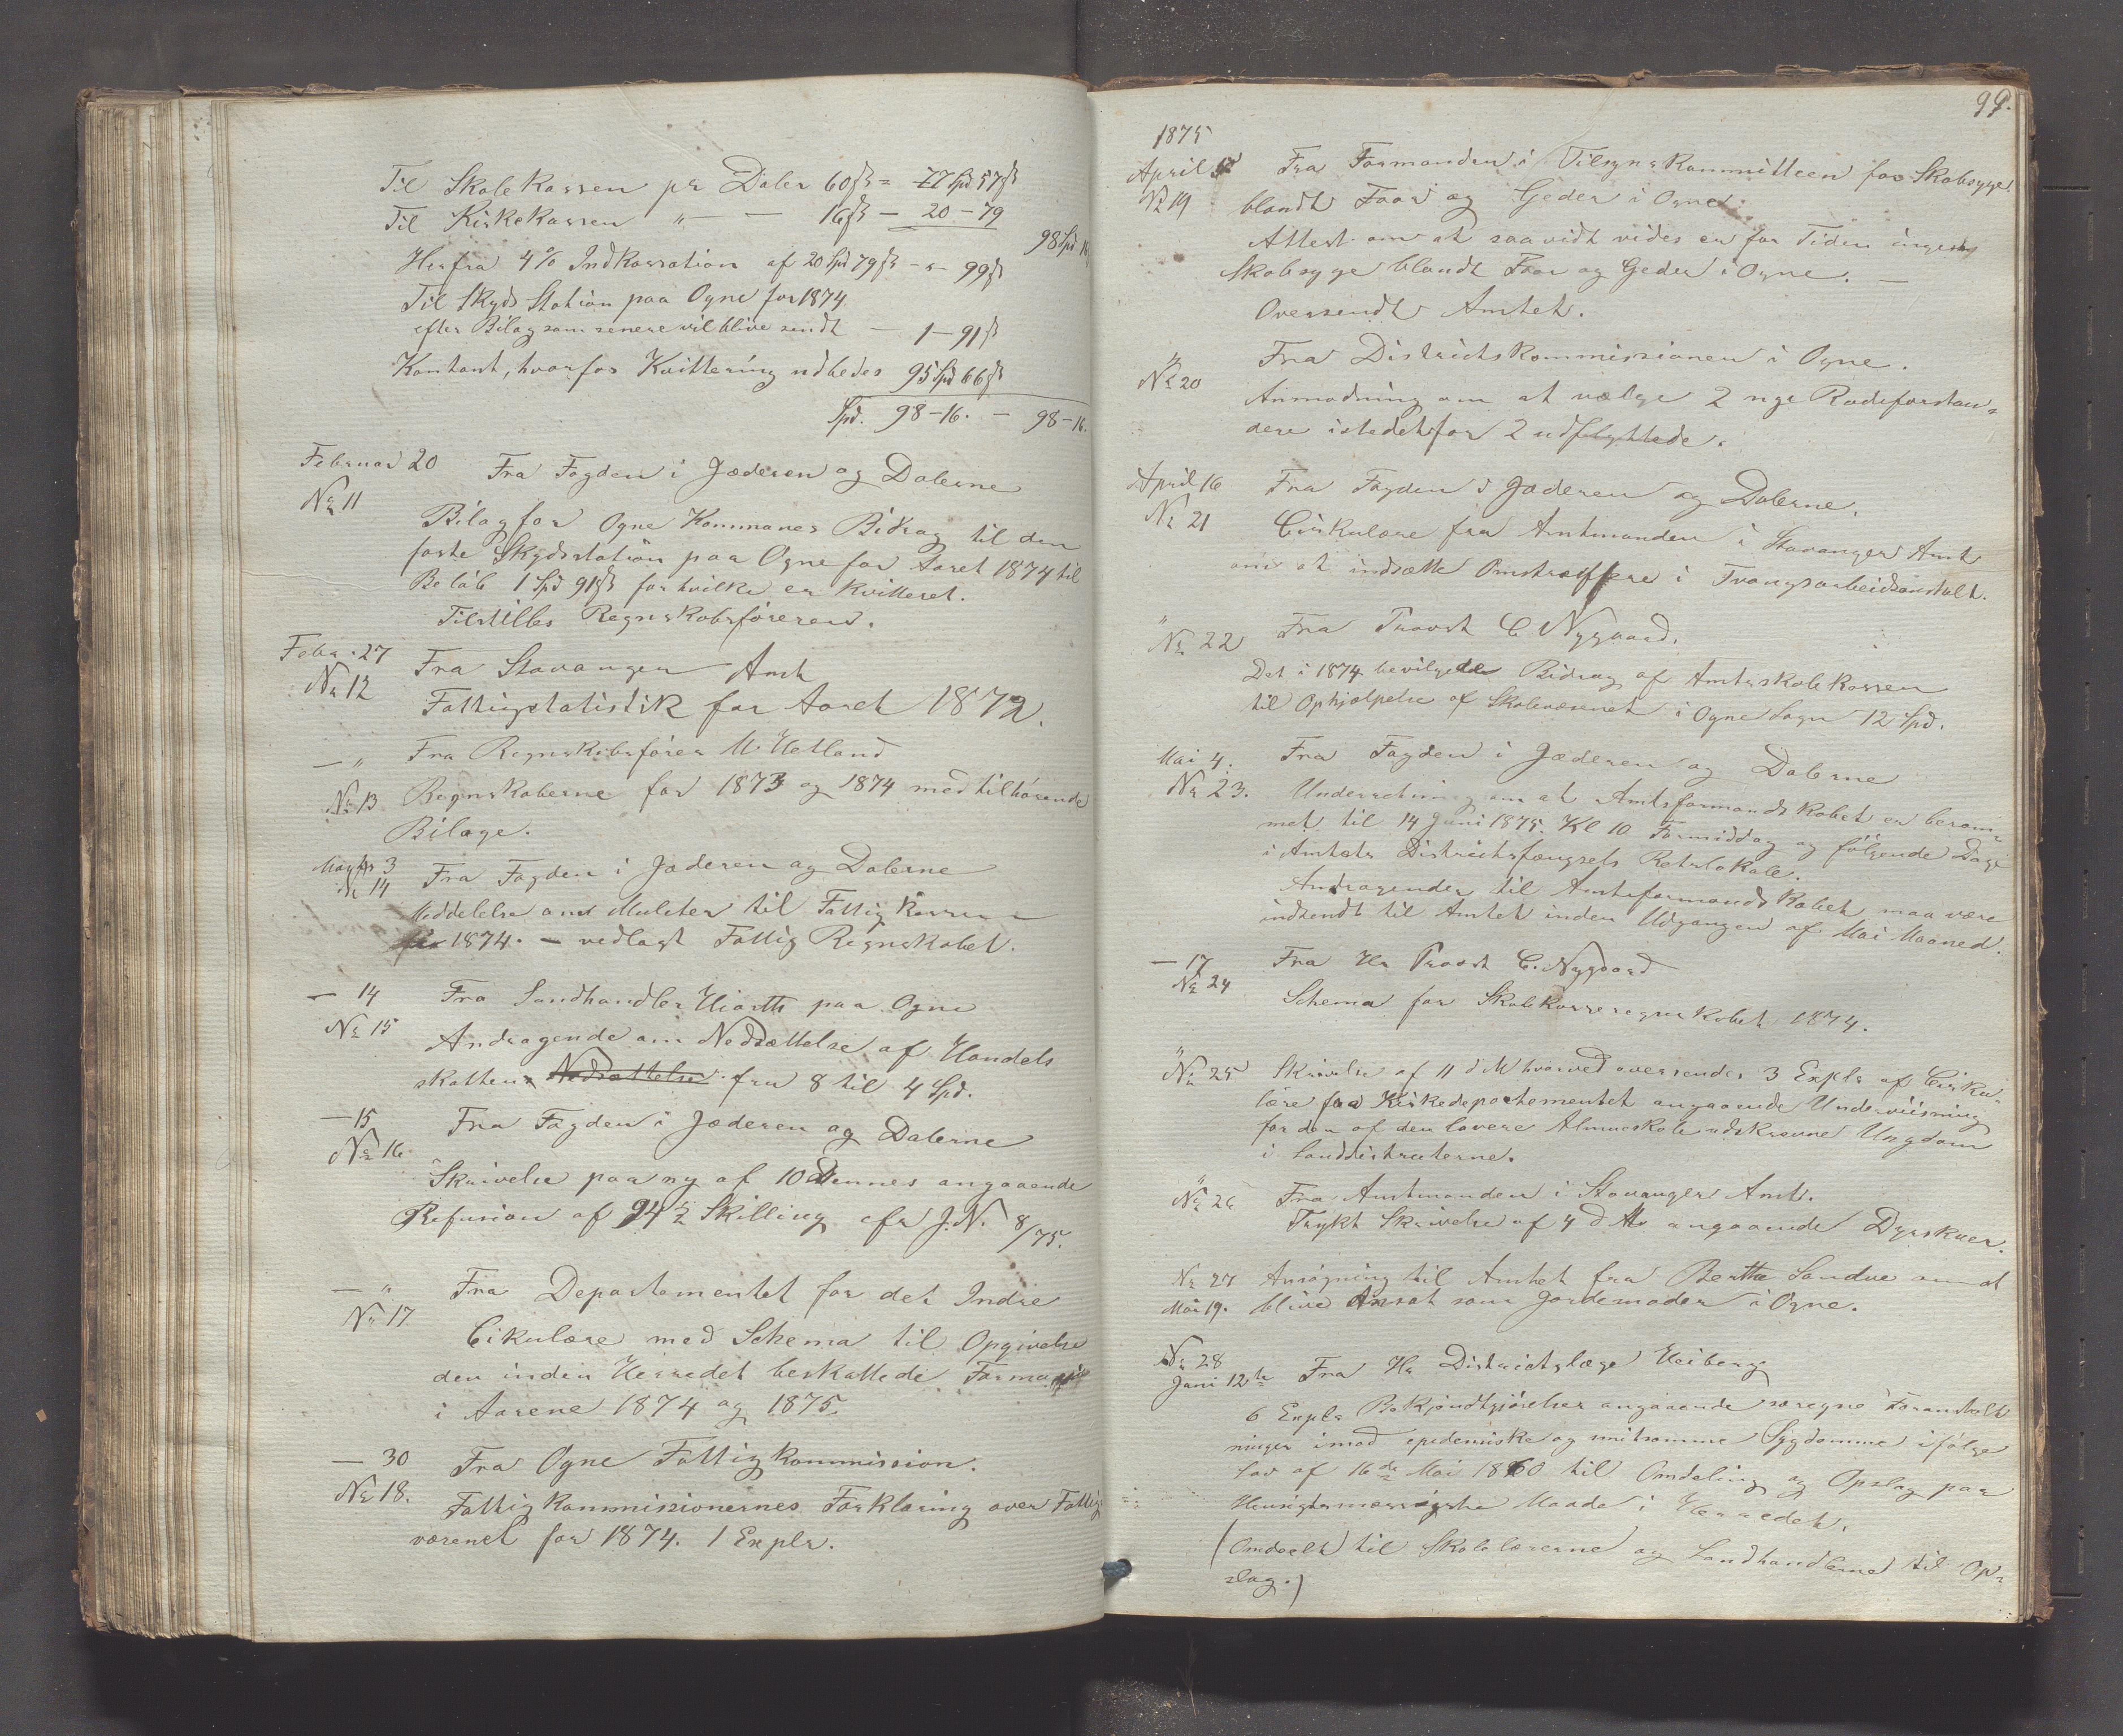 Til Skolekassen pr Daler 60 ß = 77 Spd 57 ß
Til Kirkekassen " — — 16 ß — 20 – 79
98 Spd 16
Herfra 4% Indkassation af 20 Spd 79 ß – " – 99 ß
Til Skyds Station paa Ogne for 1874
efter Bilag som senere vil blive sendt — 1 – 91 ß
Kontant, hvorfor Kvittering udbedes 95 Spd 66 ß
Spd. 98 – 16. – 98 – 16.
Februar 20 Fra Fogden i Jæderen og Dalerne
No 11
Bilag for Ogne Kommunes Bidrag til den
faste Skydsstation paa Ogne for Aaret 1874 til
Beløb 1 Spd 91 ß for hvilke er kvitteret.
Tilstilles Regnskabsføreren.
Febr. 27 Fra Stavanger Amt
No 12
Fattigstatistik for Aaret 1872.
— " Fra Regnskabsfører M. Hetland
No 13 Regnskaberne for 1873 og 1874 med tilhørende
Bilage.
Marts 3 Fra Fogden i Jæderen og Dalerne
No 14
Meddelelse om Mulcter til Fattigkassen
for 1874. – vedlagt Fattig Regnskabet.
— 14 Fra Landhandler Hiorth paa Ogne
No 15 Andragende om Nedsættelse af Handels
skatten Nedsættelse fra 8 til 4 Spd.
— 15 Fra Fogden i Jæderen og Dalerne
No 16
Skrivelse paa ny af 10 dennes angaaende
Refusion af 94 ½ Skilling cfr J.N. 8/75.
— " Fra Departementet for det Indre
No 17.
Cikulære med Schema til Opgivelse
den inden Herredet beskattede Formue
i Aarene 1874 og 1875.
— 30 Fra Ogne Fattigkommission.
No 18.
Fattigkommissionernes Forklaring over Fattig
væsenet for 1874. 1 Explr.
99.
1875
April 5 Fra Formanden i Tilsyns Kommitteen for Skabsyge
No 19 blandt Faar og Geder i Ogne.
Attest om at saavidt vides er for Tiden ingen
Skabsyge blandt Faar og Geder i Ogne. —
Oversendt Amtet.
" Fra Districtskommissionen i Ogne.
No 20
Anmodning om at vælge 2 nye Rodeforstan=
dere istedetfor 2 udflyttede.
April 16 Fra Fogden i Jæderen og Dalerne.
No 21 Cirkulære fra Amtmanden i Stavanger Amt
om at indsætte Omstreifere i Tvangsarbeidsanstalt.
"
No 22 Fra Provst C Nygaard.
Det i 1874 bevilgede Bidrag af Amtsskolekassen
til Ophjælpelse af Skolevæsenet i Ogne Sogn 12 Spd.
Mai 4. Fra Fogden i Jæderen og Dalerne
No 23. Underretning om at Amtsformandskabet er beram=
met til 14 Juni 1875. Kl 10 Formiddag og følgende Dage
i Amtets Districtsfængsels Retslokale.
Andragender til Amtsformandskabet maa være
indsendt til Amtet inden Udgangen af Mai Maaned.
— 17 Fra Hr Provst C. Nygaard
No 24
Schema for Skolekasseregnskabet 1874.
"
No 25 Skrivelse af 11 d M hvorved oversendes 3 Explr af Cirku=
lære fra Kirkedepartementet angaaende Underviisning
for den af den lavere Almueskole udskrevne Ungdom
i Landdistricterne.
"
No 26 Fra Amtmanden i Stavanger Amt.
Trykt Skrivelse af 4 d M. angaaende Dyrskuer.
No 27 Ansøgning til Amtet fra Berthe Sandve om at
Mai 19. blive Ansat som Jordemoder i Ogne.
No 28
Juni 12te Fra Hr Districtslæge Heiberg
6 Explr Bekjendtgjørelser angaaende særegne Foranstalt
ninger imod epidemiske og smitsomme Sygdomme ifølge
Lov af 16de Mai 1860 til Omdeling og Opslag paa
Hensigtsmæssigste Maade i Herredet.
(Omdeelt til Skolelærerne og Landhandlerne til Op=
slag.)